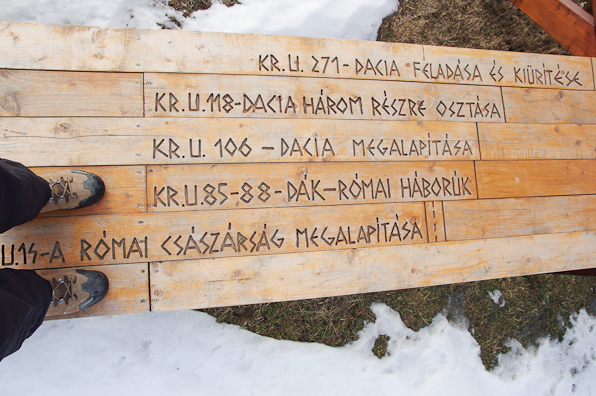 KR.U. 271 - DACIA FELADÁSA ÉS KIÜRÍTÉSE
KR.U. 118-DACIA HÁROM RÉSZRE OSZTÁSA
KR.U. 106 - DACIA MEGALAPÍTÁSA
KR.U.85-88-DÁK-RÓMAI HÁBORÚK
U.14-A RÓMAI CSÁSZÁRSÁG MEGALAPÍTÁSA